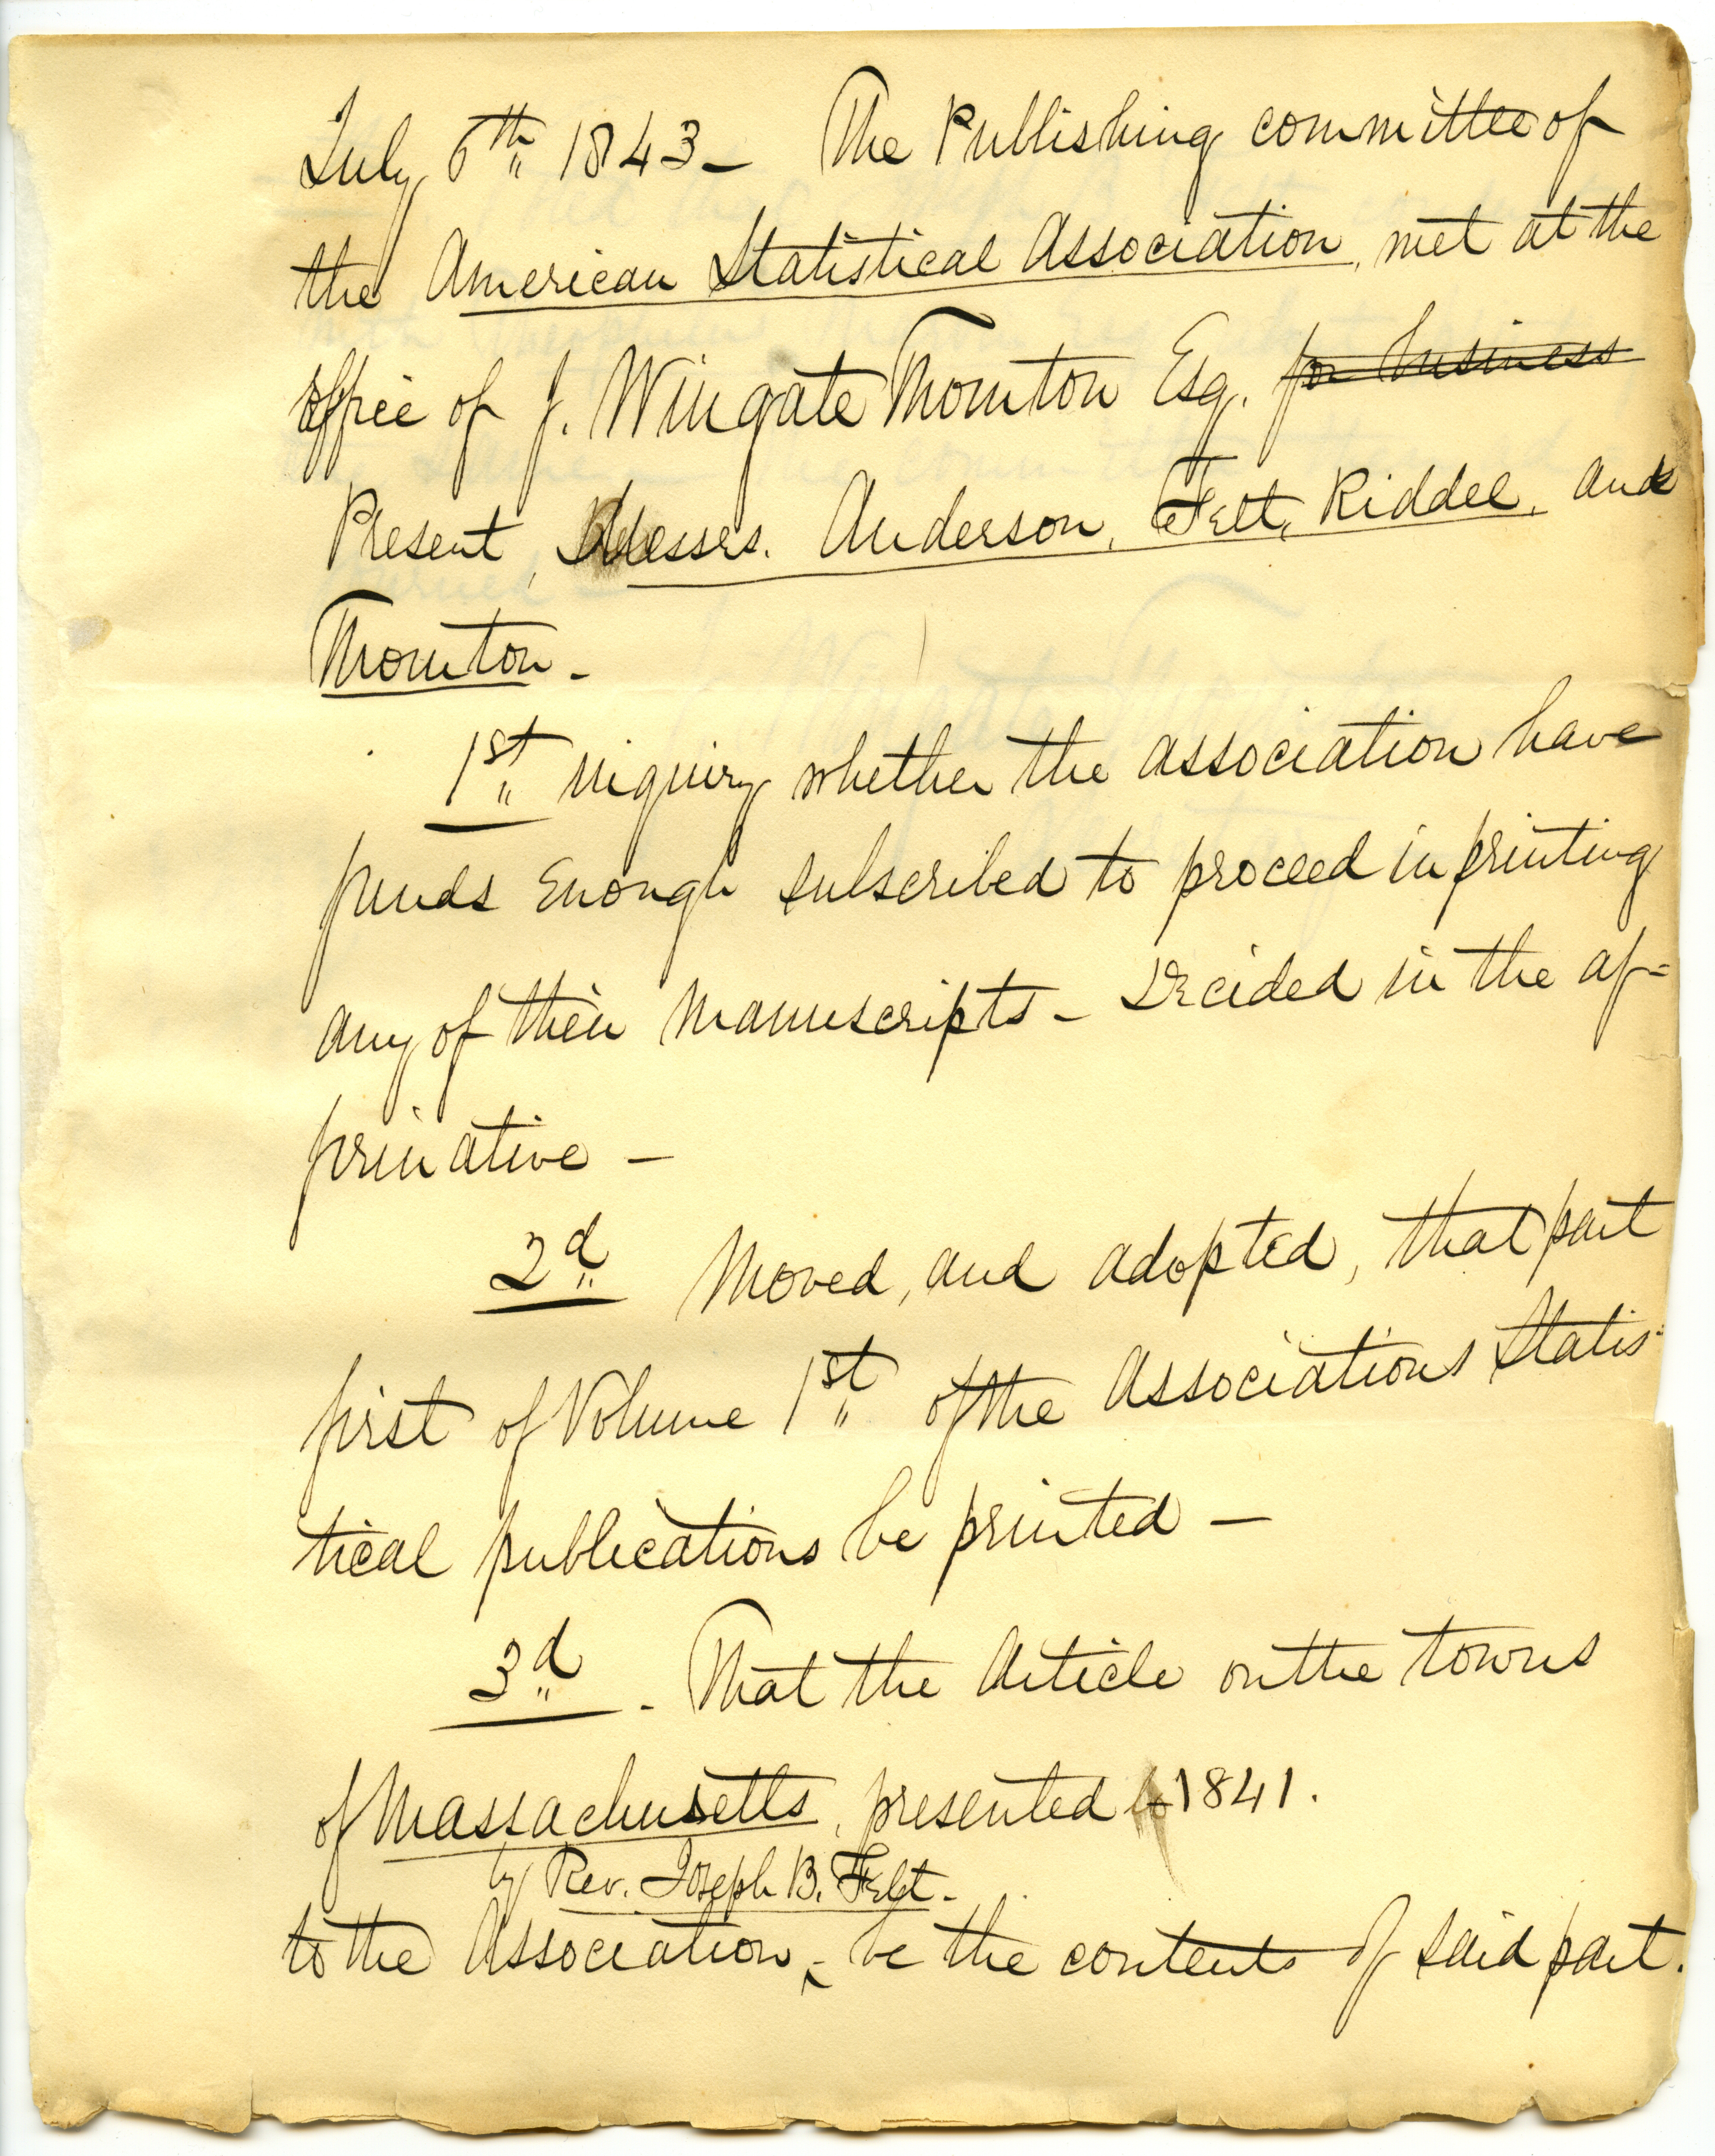 July 6th 1843 – The Publishing committee of
the American Statistical Association, met at the
office of J. Wingate Thornton Esq. for business
Present, Messrs. Anderson, Felt, Riddel, and
Thornton –
1st inquiry whether the association have
funds Enough subscribed to proceed in printing
any of their Manuscripts – Decided in the af=
firmative –
2d Moved, and adopted, that part
first of Volume 1st of the Associations Statis=
tical publications be printed –
3d – That the Article on the towns
of Massachusetts, presented to 1841.
by Rev. Joseph B. Felt –
to the Association, ^ be the contents of said part.